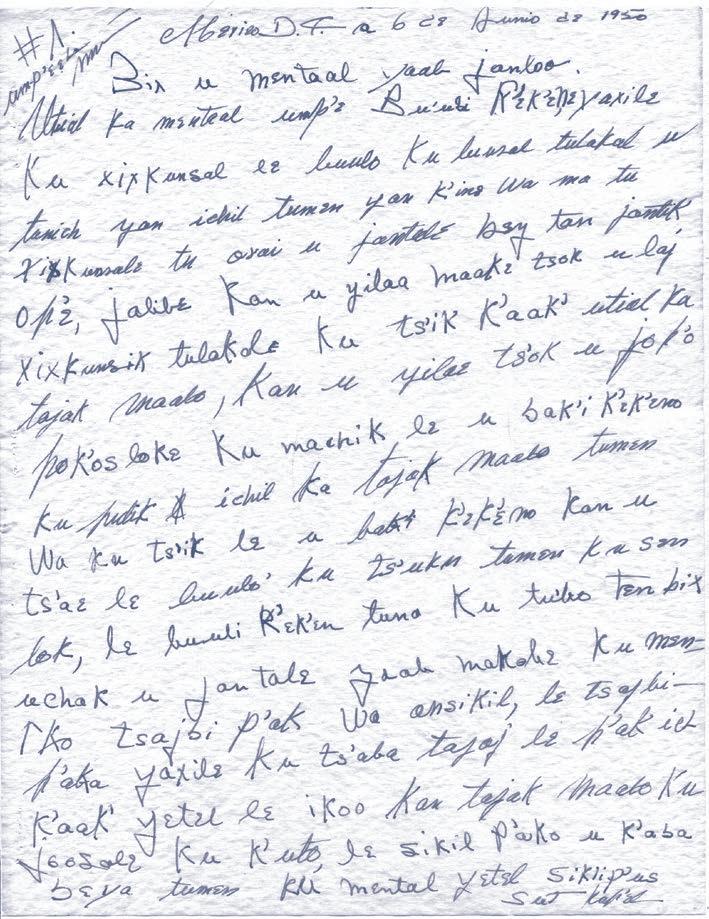 #1.
México D.F. a 6 de Junio de 1950
Bix u mentaal yaab janloo.
Utial ka mentaal ump'e Bu'uli K'ek'ene yaxile
Ku xixkunsal le buulo Ku luusal tulakal u
tunich yan ichil tumen yan k'ine wa ma tu
xixkunsale tu u jantale bey tan jantik
op'e, jalibe Kan u yilaa maake tsok u laj
xixkunsik tulakale Ku ts'ik K'aak' utial ka
tajak maalo, Kan u yilae ts'ok u jop'o
pok'os loke Ku machik le u bak'i k'ek'eno
ku pulik ichil ka tajak maalo tumen
Wa ku ts'ik le u bak'i k'ek'eno kan u
ts'ae le buulo' ku ts'uku tumen ku sen
lok, le buuli K'ek'en tuno Ku tubo Ten bix
uchak u jantale yaab makobe Ku men-
tko tsajbi p'ak Wa onsikil, le tsajbi-
p'aka yaxile Ku ts'aba tajaj le p'ak ich
K'aak' yetel le ikoo Kan tajak maalo Ku
joosale Ku K'uto, le sikil P'ako u k'aba
beya tumen ku mental yetel siklip'us